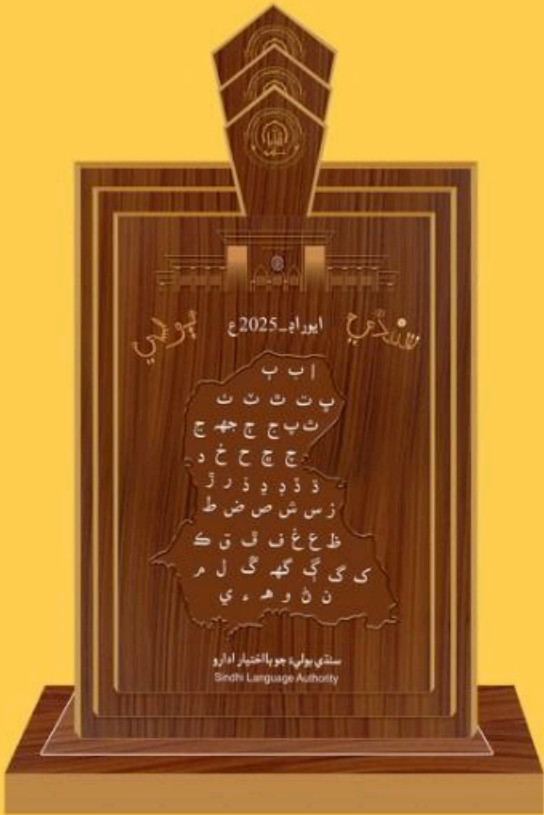 سنڌي ٻولي
ايوارڊ_2025ع
ا ب ٻ
ڀ ت ٿ ٽ ٺ
ث پ ج ڄ جهہ ڃ
چ ڇ ح خ د
ڌ ڏ ڊ ڍ ذ ر ڙ
ز س ش ص ض ط
ظ ع غ ف ڦ ق ڪ
ک گ ڳ گهہ ڱ ل م
ن ڻ و هہ ء ي
سنڌي ٻوليءَ جو بااختيار ادارو
Sindhi Language Authority